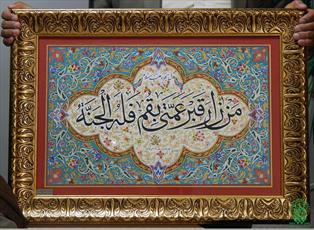 من زار قبر عمتي بقم فله الجنة